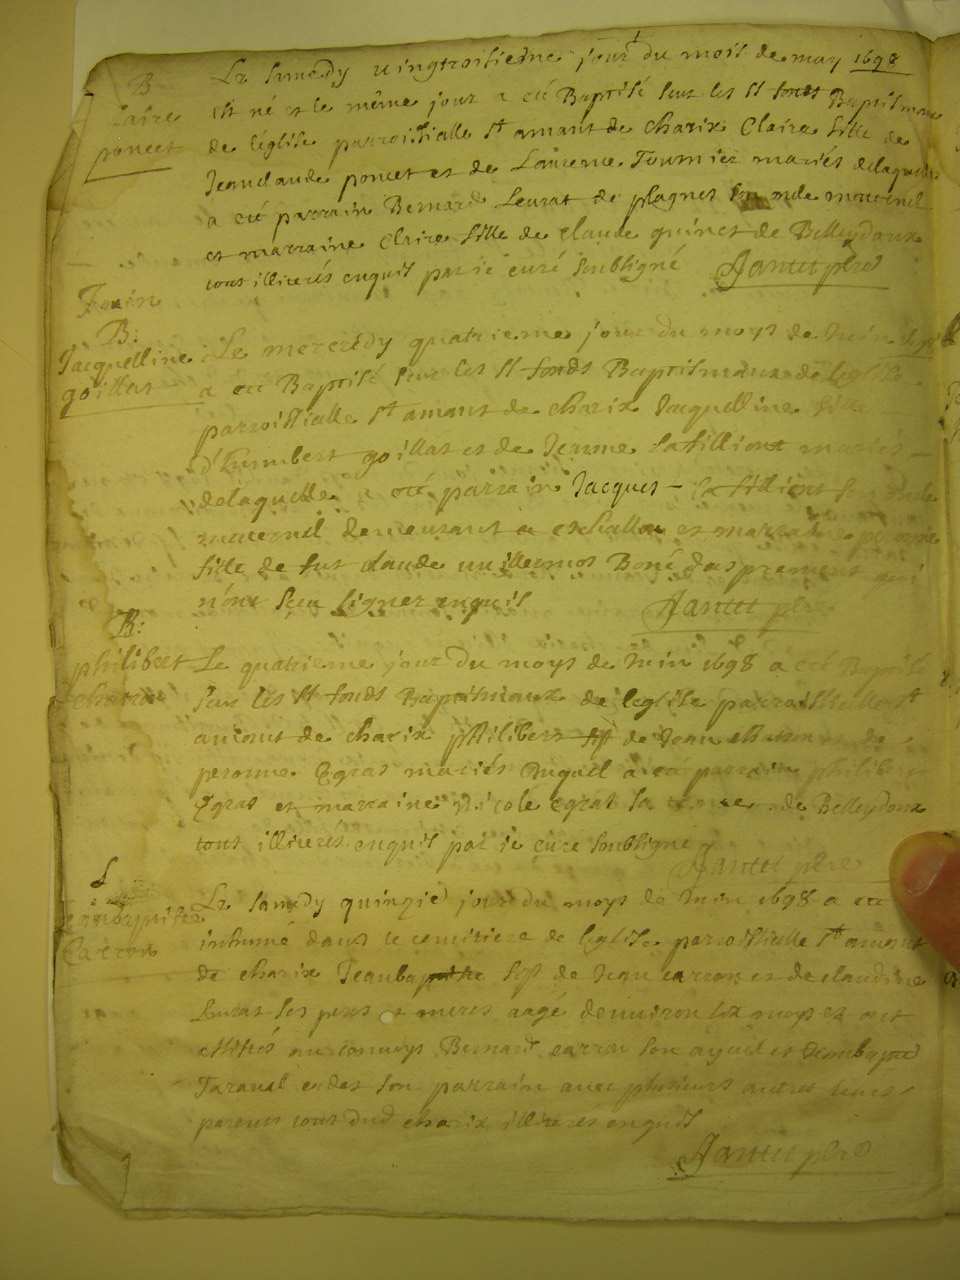 B
Claire
poncet
Le samedy vingtroisiesme jour du mois de may 1698
est né et le même jour a eté Baptisé sur les st fonts Baptismaux
de leglise parroissialle st amant de charix Claire fille de
Jeanclaude poncet et de Laurence Tournier mariés delaquelle
a eté parrain Bernard Leurat de plagnes son oncle maternel
et marraine Claire fille de claude guinet de Belleydoux
tous illiterés enquis par je curé soubsigné Jantet pbre
Jouin
B:
Jacquelline
goillat
Le mercredy quatrieme jour du moys de Juin 1698
a eté Baptisé sur les st fonds Baptismaux de leglise
parroissialle st amant de charix Jacquelline fille
d'humbert goillat et de Jerume mariés
delaquelle a eté parrain Jacques son oncle
maternel demeurant a eschallon et marraine peronne
fille de fut claude uuillermoz Boné
n'ont sceu signer enquis Jantet pbre
B:
philibert
chatron
Le quatrieme jour du moys de Juin 1698 a eté Baptisé
sur les st fonds Baptismaux de leglise parroissialle st
amant de charix philibert fils de Jean et de
peronne Egraz mariés Duquel a eté parrain philibert
Egraz et marraine Nicole Egraz sa de Belleydoux
tous illiterés enquis par je curé soubsigné
Jantet pbre
Jeanbaptiste
Carron
Le samedy quinzie jour du moys de Juin 1698 a eté
inhumé dans le cemitiere de leglise parroissialle st amant
de charix Jeanbaptiste fils de Jean carron et de claudine
Leurat ses peres et meres aagé denuiron six moys et ont
assistés au conuoys Bernard carron son ayeul et Jeanbaptiste
son parrain auec plusieurs autres leurs
parents tous dud charix illiterés enquis
Jantet pbre